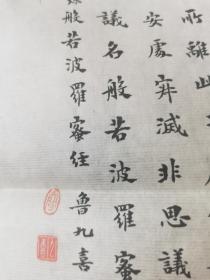 所離此
安處滅非思議
議名般若波羅蜜
般若波羅蜜經 魯九喜